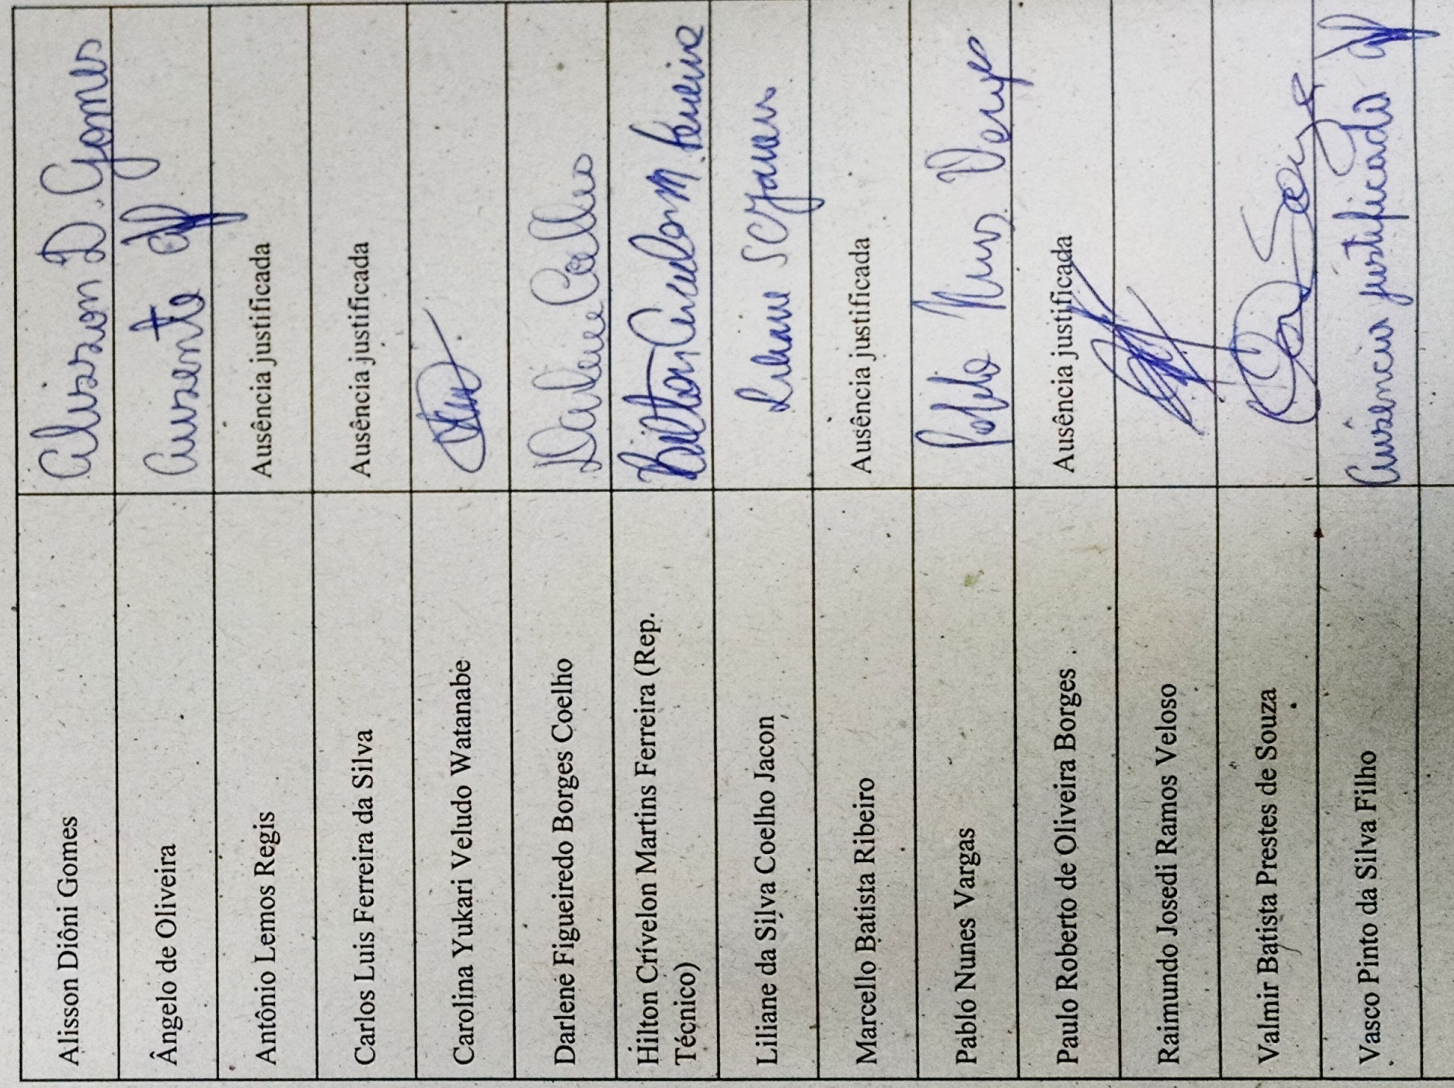 Alisson Diôni Gomes Alisson D. Gomes
Ângelo de Oliveira ausente
Antônio Lemos Regis Ausência justificada
Carlos Luis Ferreira da Silva Ausência justificada
Carolina Yukari Veludo Watanabe
Darlene Figueiredo Borges Coelho Darlene Coelho
Hilton Crívelon Martins Ferreira (Rep.
Técnico) Hilton
Liliane da Silva Coelho Jacon Liliane SCJacon
Marcello Batista Ribeiro Ausência justificada
Pablo Nunes Vargas Pablo Nunes Vargas
Paulo Roberto de Oliveira Borges Ausência justificada
Raimundo Josedi Ramos Veloso
Valmir Batista Prestes de Souza
Vasco Pinto da Silva Filho Ausência justificada